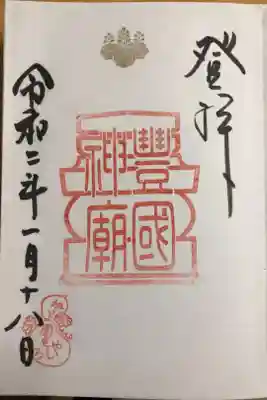 登拝
豊國
神廟
令和二年一月十八日